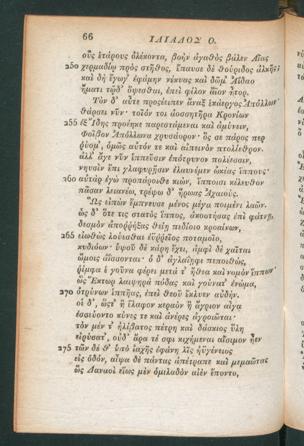 66 ΙΛΙΑΔΟΣ Ο.
οὓς ἑτάρους ὀλέκοντα, βοὴν ἀγαθὸς βάλεν Αἴας
250 χερμαδίῳ πρὸς στῆθος, ἔπαυσε δὲ θούριδος ἀλκῆς;
καὶ δὴ ἔγωγ' ἐφάμην νέκυας καὶ δῶμ' Ἀΐδαο
ἤματι τῷδ' ὄψεσθαι, ἐπεὶ φίλον ἄϊον ἦτορ.
Τὸν δ' αὖτε προσέειπεν ἄναξ ἑκάεργος Ἀπόλλων·
θάρσει νῦν· τοῖόν τοι ἀοσσητῆρα Κρονίων
255 ἐξ Ἴδης προέηκε παρεστάμεναι καὶ ἀμύνειν,
Φοῖβον Ἀπόλλωνα χρυσάορον· ὅς σε πάρος περ
ῥύομ', ὁμῶς αὐτόν τε καὶ αἰπεινὸν πτολίεθρον.
ἀλλ' ἄγε νῦν ἱππεῦσιν ἐπότρυνον πολέεσσιν,
νηυσὶν ἔπι γλαφυρῇσιν ἐλαυνέμεν ὠκέας ἵππους·
260 αὐτὰρ ἐγὼ προπάροιθε κιὼν, ἵπποισι κέλευθον
πᾶσαν λειανέω, τρέψω δ' ἥρωας Ἀχαιούς.
Ὣς εἰπὼν ἔμπνευσε μένος μέγα ποιμένι λαῶν.
ὡς δ' ὅτε τις στατὸς ἵππος, ἀκοστήσας ἐπὶ φάτνῃ,
δεσμὸν ἀποῤῥήξας θείῃ πεδίοιο κροαίνων,
265 εἰωθὼς λούεσθαι ἐϋῤῥεῖος ποταμοῖο,
κυδιόων· ὑψοῦ δὲ κάρη ἔχει, ἀμφὶ δὲ χαῖται
ὤμοις ἀΐσσονται· ὁ δ' ἀγλαΐηφι πεποιθώς,
ῥίμφα ἑ γοῦνα φέρει μετά τ' ἤθεα καὶ νομὸν ἵππων·
ὣς Ἕκτωρ λαιψηρὰ πόδας καὶ γούνατ' ἐνώμα,
270 ὀτρύνων ἱππῆας, ἐπεὶ θεοῦ ἔκλυεν αὐδήν.
οἱ δ', ὥστ' ἢ ἔλαφον κεραὸν ἢ ἄγριον αἶγα
ἐσσεύοντο κύνες τε καὶ ἀνέρες ἀγροιῶται·
τὸν μέν τ' ἠλίβατος πέτρη καὶ δάσκιος ὕλη
εἰρύσατ', οὐδ' ἄρα τέ σφι κιχήμεναι αἴσιμον ἦεν·
275 τῶν δέ θ' ὑπὸ ἰαχῆς ἐφάνη λὶς ἠϋγένειος
εἰς ὁδόν, αἶψα δὲ πάντας ἀπέτραπε καὶ μεμαῶτας·
ὣς Δαναοὶ εἵως μὲν ὁμιλαδὸν αἰὲν ἕποντο,